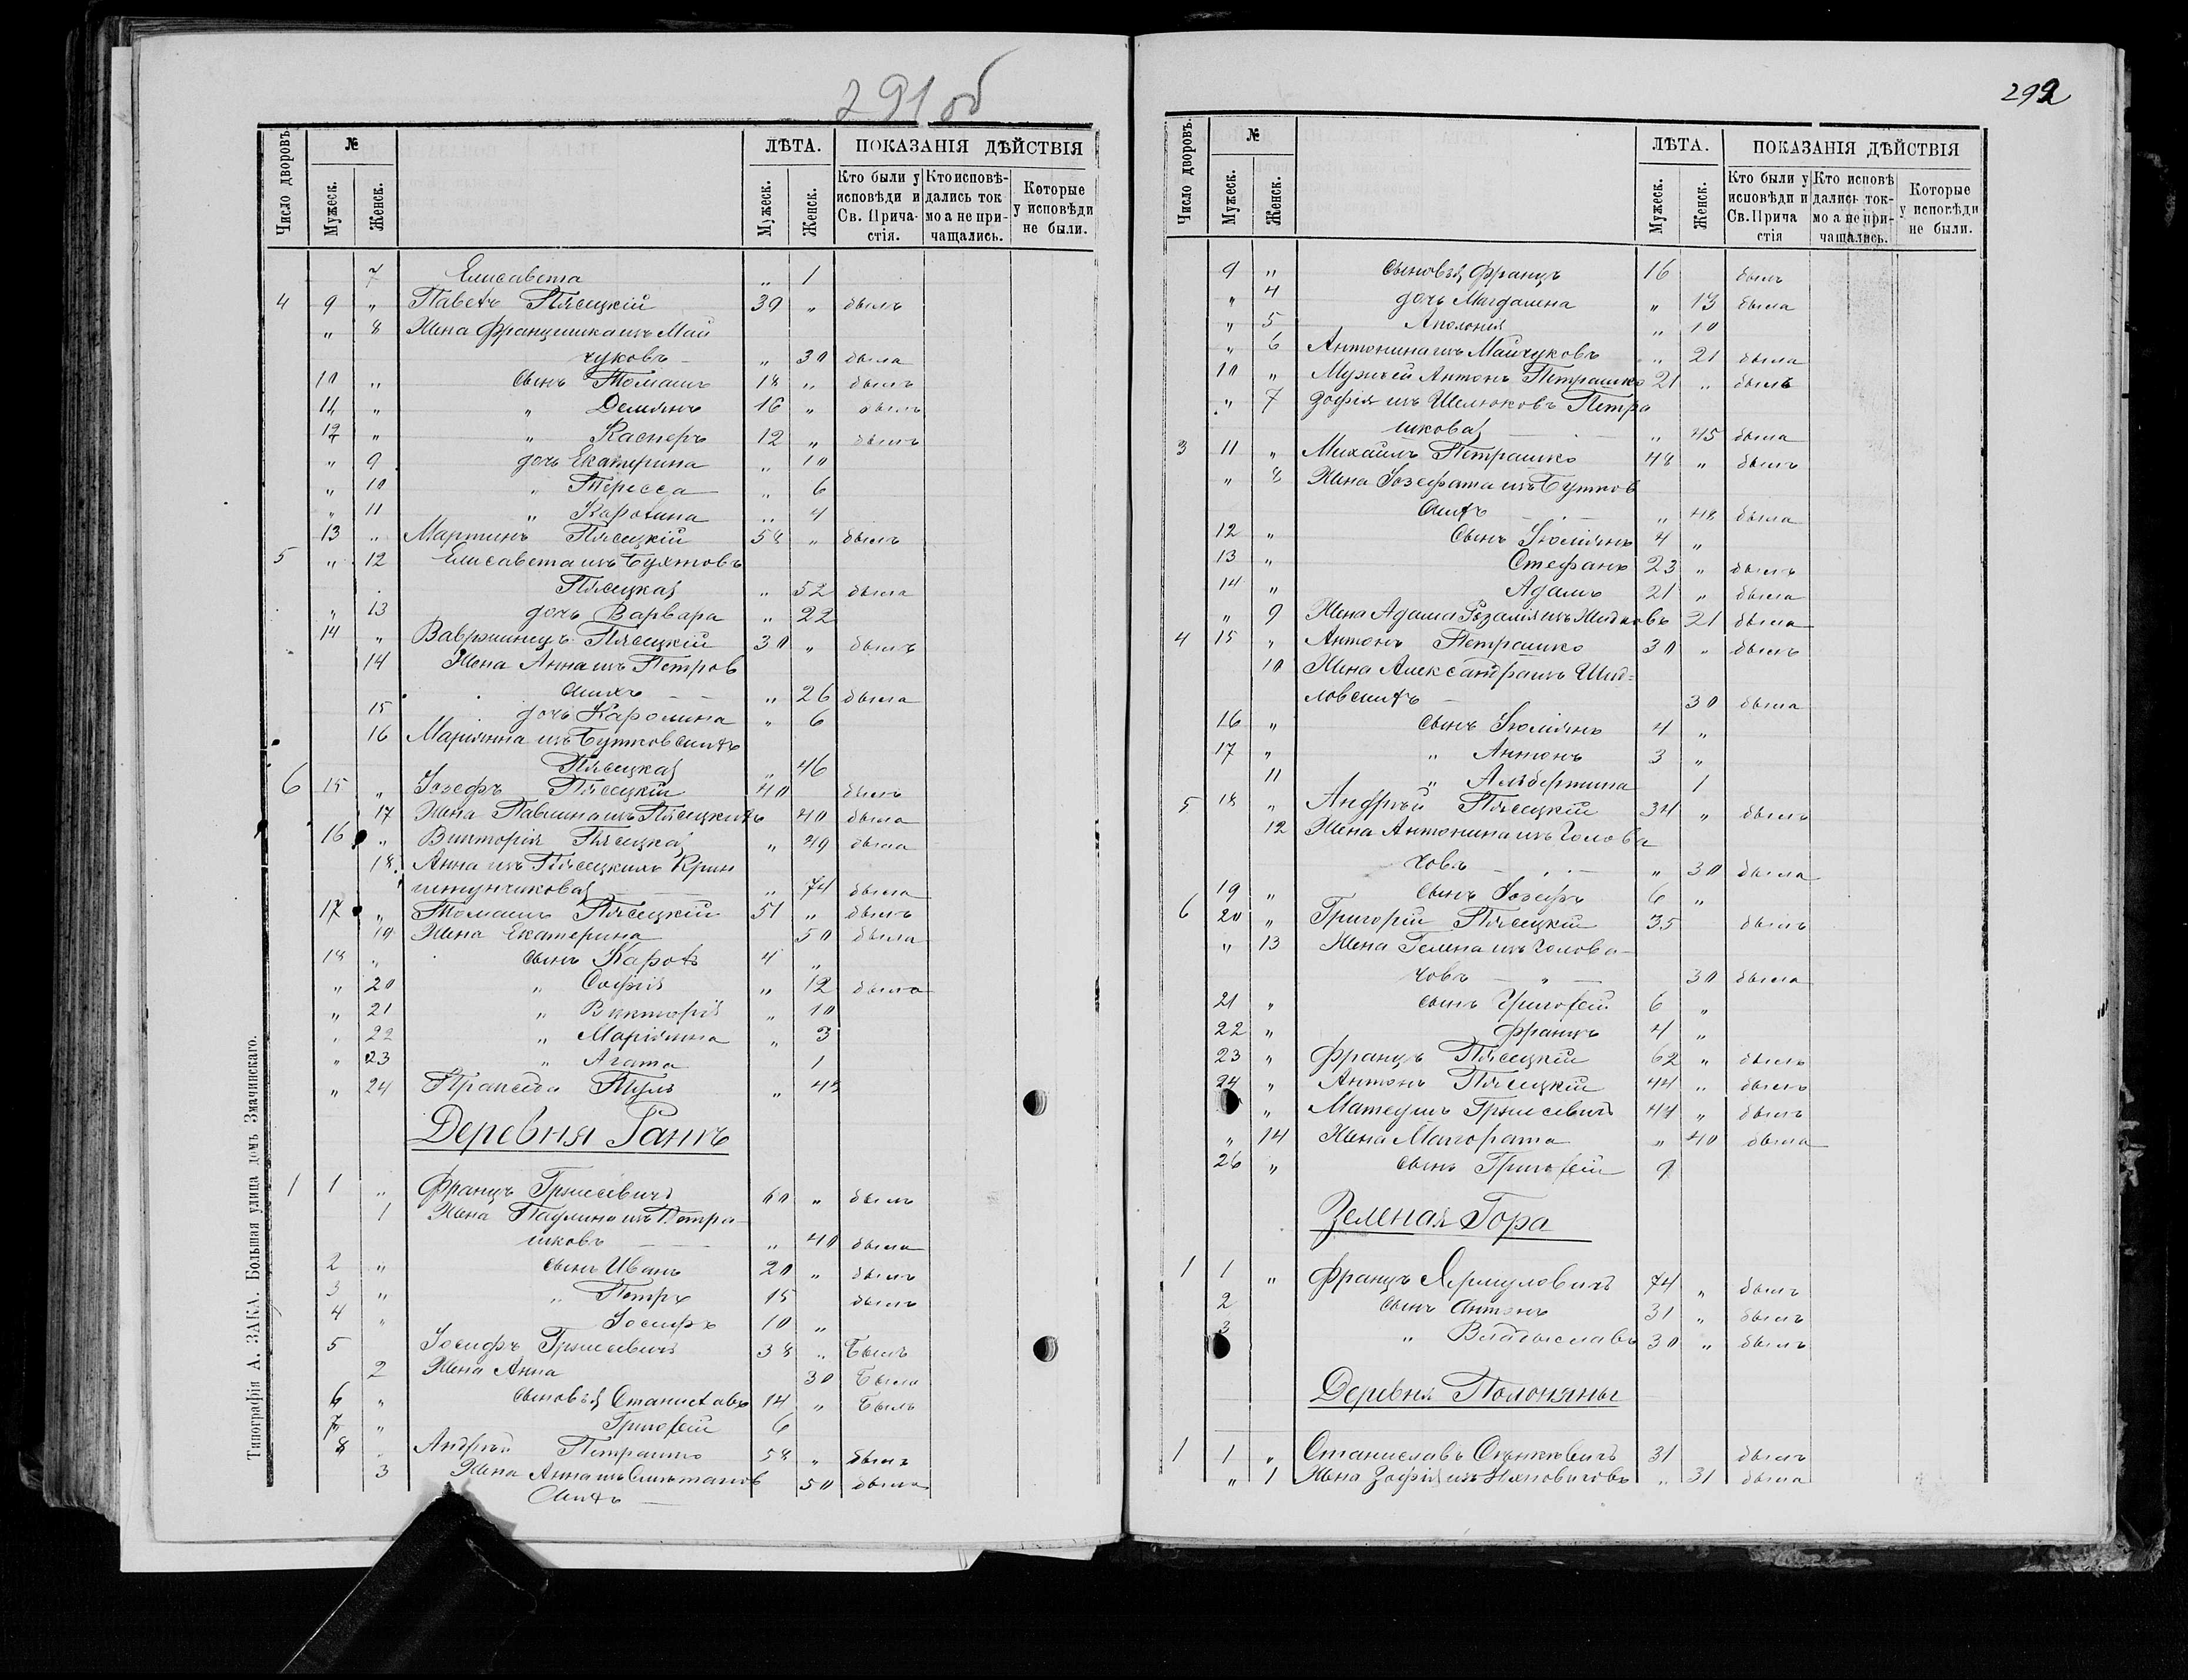 291 об
Число дворовъ. № ЛѢТА. ПОКАЗАНІЯ ДѢЙСТВІЯ
Мужеск. Женск. Мужеск. Женск. Кто были у исповѣди и Св. Прича-стія. Кто исповѣ-дались ток мо а не при-чащались. Которые у исповѣди не были.
7 Елисавета „ 1
4 9 „ Павелъ Плесецкій 39 „ былъ
„ 8 Жена Францишка изъ Май
чуковъ „ 30 была
10 „ сынъ Томашъ 18 „ былъ
11 „ „ Демянъ 16 „ былъ
12 „ „ Касперъ 12 „ былъ
„ 9 дочь Екатерина „ 10
„ 10 „ Тересса „ 6
„ 11 „ Каролина „ 4
13 „ Мартинъ Плесецкій 58 „ былъ
5 „ 12 Елисавета изъ Бухтовъ
Плесецкая „ 52 была
„ 13 дочь Варвара „ 22
14 „ Вавржинецъ Плесецкій 30 „ былъ
14 Жена Анна изъ Петров
скихъ „ 26 была
15 дочь Каролина „ 6
16 Маріянна изъ Бутковскихъ
Плесецкая „ 46
6 15 „ Іозефъ Плесецкій 40 былъ
17 Жена Павлина изъ Плесецкихъ 40 была
16 „ Викторія Плесецка „ 49 была
18 Анна изъ Плесецкихъ Крин
штунчиковая „ 74 была
17 „ Томашъ Плесецкій 51 „ былъ
19 Жена Екатерина 50 была
18 „ сынъ Кароль 4 „
„ 20 „ Софія „ 12 была
„ 21 „ Викторія „ 10
„ 22 „ Маріянна „ 3
„ 23 „ Агата 1
„ 24 Праксида „ 42
Деревня Гантъ
1 1 „ Францъ Грыцевичъ 60 „ былъ
1 Жена Паулина изъ Петра
шковъ „ 40 была
2 „ сынъ Иванъ 20 „ былъ
3 „ „ Петръ 15 былъ
4 „ Іосифъ 10 „
5 Іосифъ Грыцевичъ 38 „ Былъ
2 Жена Анна 30 Была
6 „ сыновья Станиславъ 14 „ Былъ
7 „ Григорій 6
8 „ Андрей Петрашко 58 „ былъ
3 Жена Анна изъ Сметанов
скихъ 50 была
Типографія А. ЗАКА. Большая улица домъ Значинскаго.
292
Число дворовъ. № ЛѢТА. ПОКАЗАНІЯ ДѢЙСТВІЯ
Мужеск. Женск. Мужеск. Женск. Кто были у исповѣди и Св. Прича стія Кто исповѣ дались ток-мо а не при-чащались. Которые у исповѣди не были.
9 „ сыновья Францъ 16 былъ
„ 4 дочь Магдалена „ 13 была
„ 5 Аполонія „ 10
„ 6 Антонина изъ Майчуковъ „ 21 была
10 „ Мужъ ей Антонъ Петрашко 21 „ былъ
„ 7 Зофія изъ Шелюковъ Петра
шковая „ 45 была
3 11 „ Михаилъ Петрашко 48 „ былъ
„ 8 Жена Іозефата изъ Бутков
скихъ „ 48 была
12 „ Сынъ Юліянъ 4 „
13 „ Стефанъ 23 „ былъ
14 „ Адамъ 21 „ была
„ 9 Жена Адама Розалія изъ Жидковъ 21 была
4 15 „ Антонъ Петрашко 30 „ былъ
10 Жена Александра изъ Шид=
ловскихъ 30 была
16 „ сынъ Юліянъ 4 „
17 „ „ Антонъ 3 „
11 „ Альбертина 1
5 18 „ Андрей Плесецкій 34 „ былъ
12 Жена Антонина изъ Голова
човъ „ 30 была
19 „ сынъ Іозефъ 6 „
6 20 „ Григорій Плесецкій 35 былъ
„ 13 Жена Гелена изъ Голова-
човъ „ 30 была
21 „ сынъ Григорій 6 „
22 „ Францъ 4 „
23 „ Францъ Плесецкій 62 „ былъ
24 „ Антонъ Плесецкій 44 „ былъ
„ Матеушъ Грыцевичъ 44 „ былъ
„ 14 Жена Малгората „ 40 была
26 „ сынъ Григорій 9
Зеленая Гора
1 1 „ Францъ Ярмуловичъ 74 „ былъ
2 сынъ Антонъ 31 „ былъ
3 „ Владыславъ 30 „ былъ
Деревня Полоняны
1 1 „ Станиславъ Стынковичъ 31 былъ
„ 1 Жена Зофія изъ „ 31 была